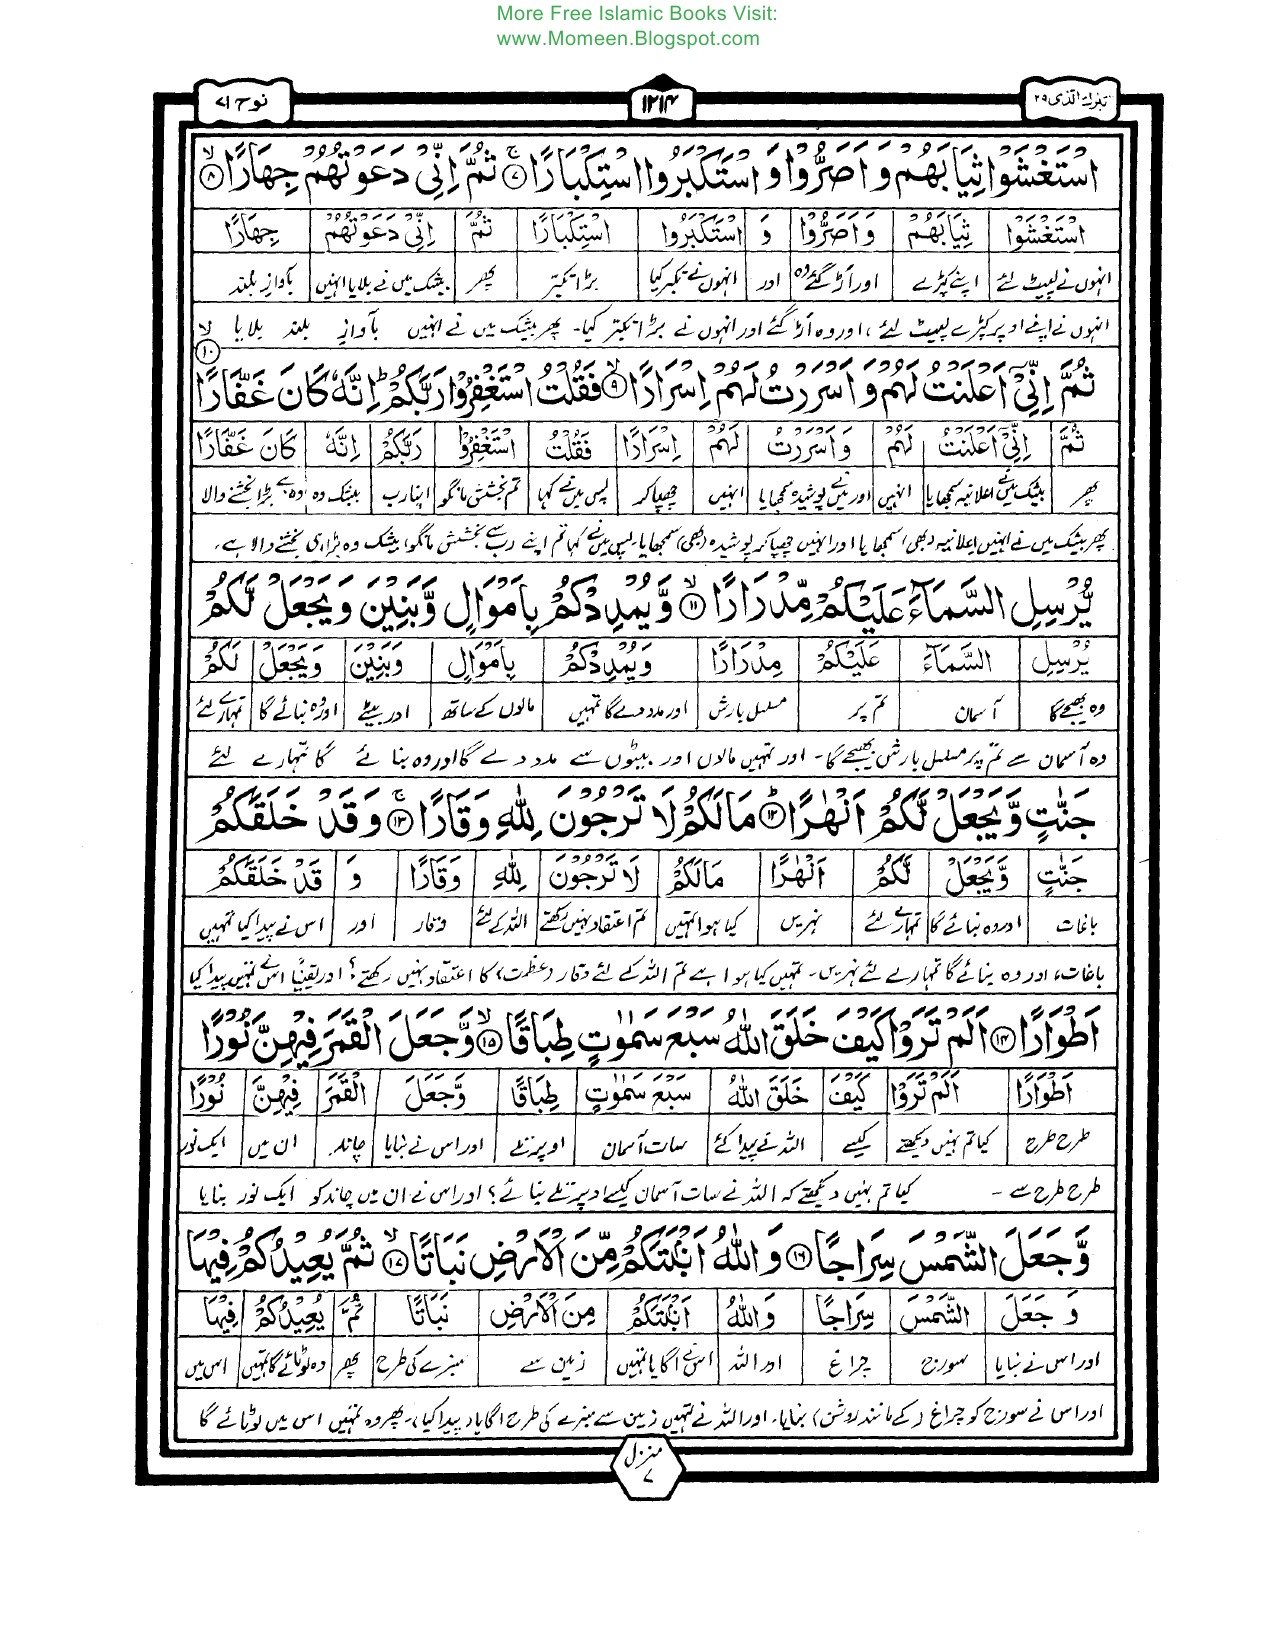 More Free Islamic Books Visit:
www.Momeen.Blogspot.com
تبٰرك الذی ۲۹
۱۲۱۴
نوح ۷۱
اسْتَغْشَوْا ثِيَابَهُمْ وَاَصَرُّوْا وَاسْتَكْبَرُوا اسْتِكْبَارًا ۷ ثُمَّ اِنِّىْ دَعَوْتُهُمْ جِهَارًا ۸
اسْتَغْشَوْا ثِيَابَهُمْ وَاَصَرُّوْا وَ اسْتَكْبَرُوا اسْتِكْبَارًا ثُمَّ اِنِّىْ دَعَوْتُهُمْ جِهَارًا
انہوں نے لپیٹ لئے اپنے کپڑے اور اَڑ گئے وہ اور انہوں نے تکبر کیا بڑا تکبّر پھر بیشک میں نے بلایا انہیں بآوازِ بلند
انہوں نے اپنے اوپر کپڑے لپیٹ لئے، اور وہ اَڑ گئے اور انہوں نے بڑا تکبّر کیا۔ پھر بیشک میں نے انہیں بآوازِ بلند بلایا
ثُمَّ اِنِّىْٓ اَعْلَنْتُ لَهُمْ وَاَسْرَرْتُ لَهُمْ اِسْرَارًا ۹ فَقُلْتُ اسْتَغْفِرُوْا رَبَّكُمْ ط اِنَّهٗ كَانَ غَفَّارًا ۱۰
ثُمَّ اِنِّىْٓ اَعْلَنْتُ لَهُمْ وَاَسْرَرْتُ لَهُمْ اِسْرَارًا فَقُلْتُ اسْتَغْفِرُوْا رَبَّكُمْ اِنَّهٗ كَانَ غَفَّارًا
پھر بیشک میں نے اعلانیہ سمجھایا انہیں اور میں نے پوشیدہ سمجھایا انہیں چھپا کر پس میں نے کہا تم بخشش مانگو اپنا رب بیشک وہ وہ ہے بڑا بخشنے والا
پھر بیشک میں نے انہیں اعلانیہ (بھی) سمجھایا اور انہیں چھپا کر پوشیدہ (بھی) سمجھایا۔ پس میں نے کہا تم اپنے رب سے بخشش مانگو، بیشک وہ بڑا ہی بخشنے والا ہے۔
يُّرْسِلِ السَّمَآءَ عَلَيْكُمْ مِّدْرَارًا ۱۱ وَّيُمْدِدْكُمْ بِاَمْوَالٍ وَّبَنِيْنَ وَيَجْعَلْ لَّكُمْ
يُرْسِلِ السَّمَآءَ عَلَيْكُمْ مِدْرَارًا وَيُمْدِدْكُمْ بِاَمْوَالٍ وَبَنِيْنَ وَيَجْعَلْ لَكُمْ
وہ بھیجے گا آسمان تم پر مسلسل بارش اور مدد دے گا تمہیں مالوں کے ساتھ اور بیٹے اور وہ بنائے گا تمہارے لئے
وہ آسمان سے تم پر مسلسل بارش بھیجے گا۔ اور تمہیں مالوں اور بیٹوں سے مدد دے گا اور وہ بنائے گا تمہارے لئے
جَنّٰتٍ وَّيَجْعَلْ لَّكُمْ اَنْهٰرًا ۱۲ مَا لَكُمْ لَا تَرْجُوْنَ لِلّٰهِ وَقَارًا ۱۳ وَقَدْ خَلَقَكُمْ
جَنّٰتٍ وَّيَجْعَلْ لَّكُمْ اَنْهٰرًا مَالَكُمْ لَا تَرْجُوْنَ لِلّٰهِ وَقَارًا وَ قَدْ خَلَقَكُمْ
باغات اور وہ بنائے گا تمہارے لئے نہریں کیا ہوا تمہیں تم اعتقاد نہیں رکھتے اللہ کے لئے وقار اور اس نے پیدا کیا تمہیں
باغات، اور وہ بنائے گا تمہارے لئے نہریں۔ تمہیں کیا ہوا ہے تم اللہ کے لئے وقار (عظمت) کا اعتقاد نہیں رکھتے؟ اور یقیناً اس نے تمہیں پیدا کیا
اَطْوَارًا ۱۴ اَلَمْ تَرَوْا كَيْفَ خَلَقَ اللّٰهُ سَبْعَ سَمٰوٰتٍ طِبَاقًا ۱۵ وَّجَعَلَ الْقَمَرَ فِيْهِنَّ نُوْرًا
اَطْوَارًا اَلَمْ تَرَوْا كَيْفَ خَلَقَ اللّٰهُ سَبْعَ سَمٰوٰتٍ طِبَاقًا وَّجَعَلَ الْقَمَرَ فِيْهِنَّ نُوْرًا
طرح طرح کیا تم نہیں دیکھتے کیسے اللہ نے پیدا کئے سات آسمان اوپر تلے اور اس نے بنایا چاند ان میں ایک نور
طرح طرح سے ۔ کیا تم نہیں دیکھتے کہ اللہ نے سات آسمان کیسے اوپر تلے بنائے؟ اور اس نے ان میں چاند کو ایک نور بنایا
وَّجَعَلَ الشَّمْسَ سِرَاجًا ۱۶ وَاللّٰهُ اَنْۢبَتَكُمْ مِّنَ الْاَرْضِ نَبَاتًا ۱۷ ثُمَّ يُعِيْدُكُمْ فِيْهَا
وَجَعَلَ الشَّمْسَ سِرَاجًا وَاللّٰهُ اَنْۢبَتَكُمْ مِنَ الْاَرْضِ نَبَاتًا ثُمَّ يُعِيْدُكُمْ فِيْهَا
اور اس نے بنایا سورج چراغ اور اللہ اس نے اگایا تمہیں زمین سے سبزے کی طرح پھر وہ لوٹائے گا تمہیں اس میں
اور اس نے سورج کو چراغ (کے مانند روشن) بنایا۔ اور اللہ نے تمہیں زمین سے سبزے کی طرح اگایا (پیدا کیا)۔ پھر وہ تمہیں اس میں لوٹائے گا
منزل ۷